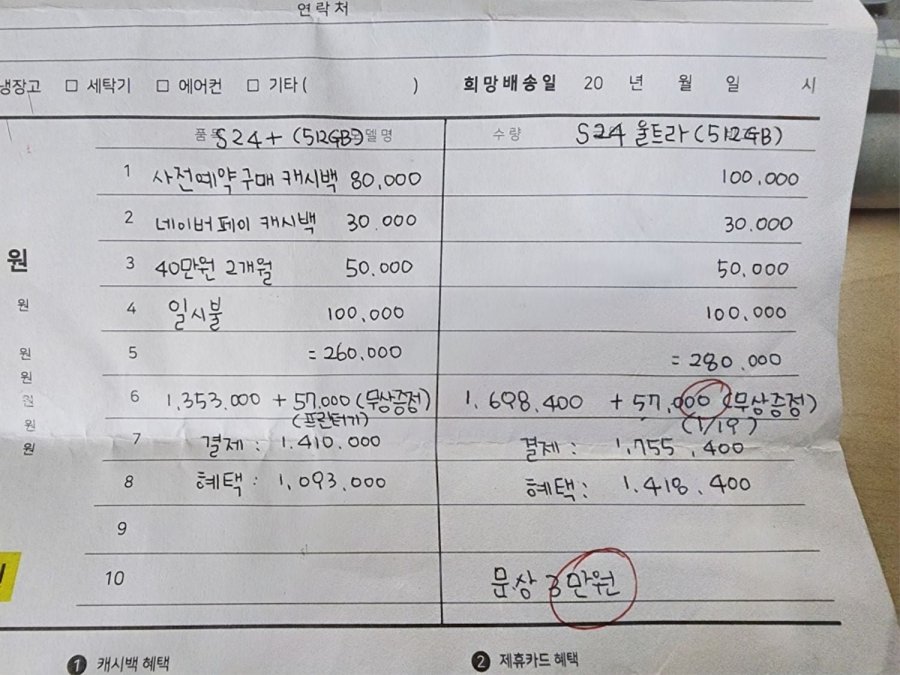 연락처
냉장고 □ 세탁기 □ 에어컨 □ 기타 ( ) 희망배송일 20 년 월 일 시
S24+ (512GB) 델명 수량 S24 울트라 (512GB)
1 사전예약 구매 캐시백 80,000 100,000
2 네이버페이 캐시백 30.000 30.000
원 3 40만원 2개월 50,000 50,000
원 4 일시불 100,000 100,000
원 5 = 260,000 = 280.000
원
원 6 1,353.000 + 57,000 (무상증정) 1.698.400 + 57,000 (무상증정)
원 (프린터기) (1/19)
원 7 결제 : 1.410.000 결제 : 1,755,400
8 혜택 : 1,093.000 혜택 : 1.418,400
9
10 문상 3만원
1 캐시백 혜택 2 제휴카드 혜택